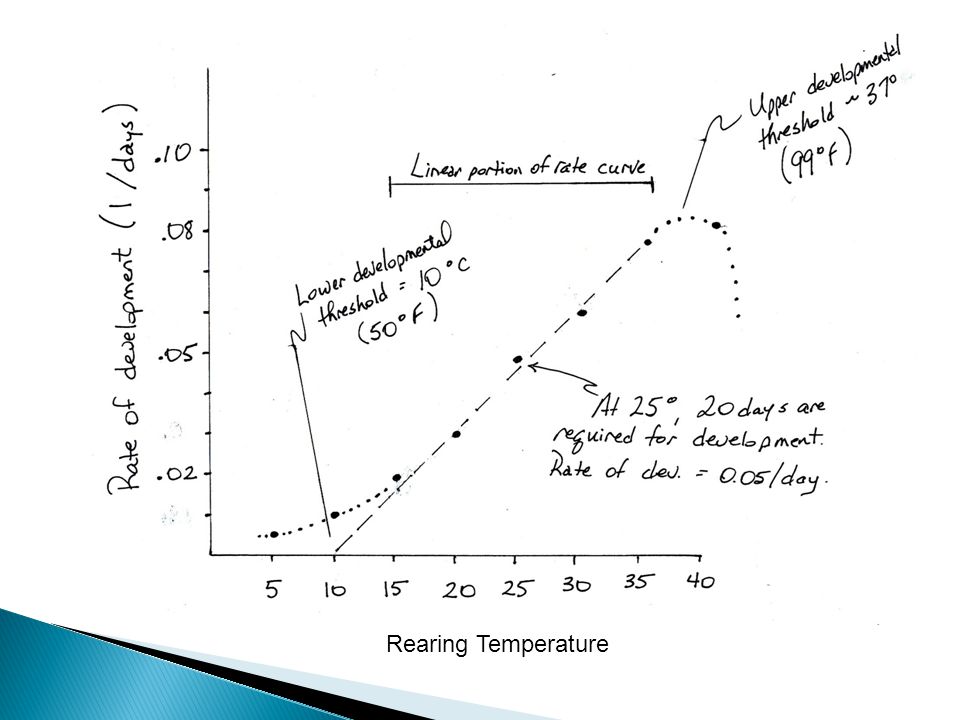 Upper developmental
threshold ~ 37°
(99°F)
Linear portion of rate curve
Lower developmental
threshold = 10°C
(50°F)
Rate of development (1/days)
.10
.08
.05
.02
At 25°, 20 days are
required for development.
Rate of dev. = 0.05/day.
5 10 15 20 25 30 35 40
Rearing Temperature